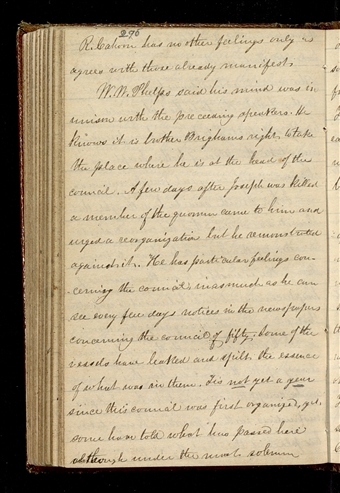 296
R. Cahoon has no other feelings only as
agrees with those already manifest.
W. W. Phelps said his mind was in
unison with the preceeding speakers. He
knows it is brother Brighams right to take
the place where he is at the head of the
council. A few days after Joseph was killed
a member of the quorum came to him and
urged a reorganization but he remonstrated
against it. He has particular feelings con-
-cerning the council inasmuch as he can
see every few days notices in the newspapers
concerning the council of fifty. Some of the
vessels have leaked and spilt the essence
of what was in them. Tis not yet a year
since this council was first organized, yet
some have told what has passed here
although under the most solemn